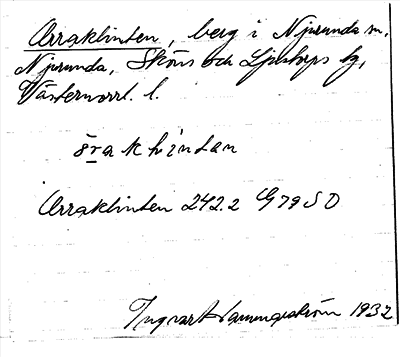 Orraklinten, berg i Njurunda sn,
Njurunda, Sköns och Ljustorps tg,
Västernorrl. l.
år̲a k lìntan
Orraklinten 242.2 G 79 S O
Ingvar Hammarström 1932